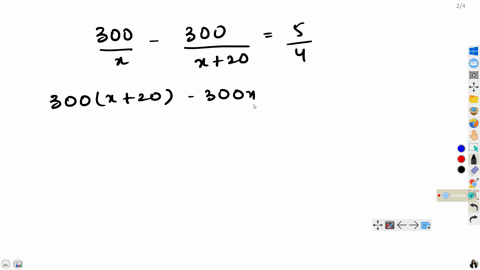 2/4
300/x - 300/(x+20) = 5/4
300(x+20) - 300x